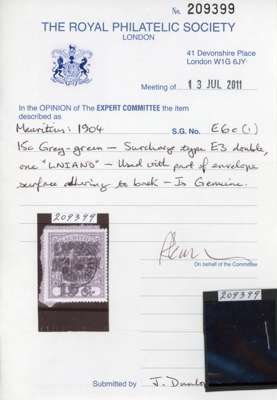 No. 209399
THE ROYAL PHILATELIC SOCIETY
LONDON
41 Devonshire Place
London W1G 6JY
Meeting of 13 JUL 2011
In the OPINION of The EXPERT COMMITTEE the item
described as
Mauritius: 1904 S.G. No. E6c(1)
15c Grey-green – Surcharge type E3 double,
one "LNIANG" – Used with part of envelope
surface adhering to back – Is Genuine.
209399
On behalf of the Committee
209399
Submitted by J. Dunlop